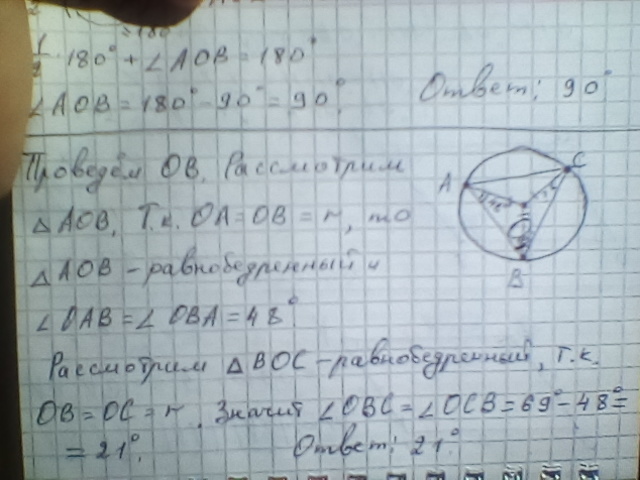 1/2 · 180° + ∠AOB = 180°
∠AOB = 180° - 90° = 90°.
Ответ: 90°
Проведём OB. Рассмотрим
△AOB. Т.к. OA = OB = r, то
△AOB - равнобедренный и
∠OAB = ∠OBA = 48°
Рассмотрим △BOC - равнобедренный, т.к.
OB = OC = r. Значит ∠OBC = ∠OCB = 69° - 48° =
= 21°. Ответ: 21°.
A
C
B